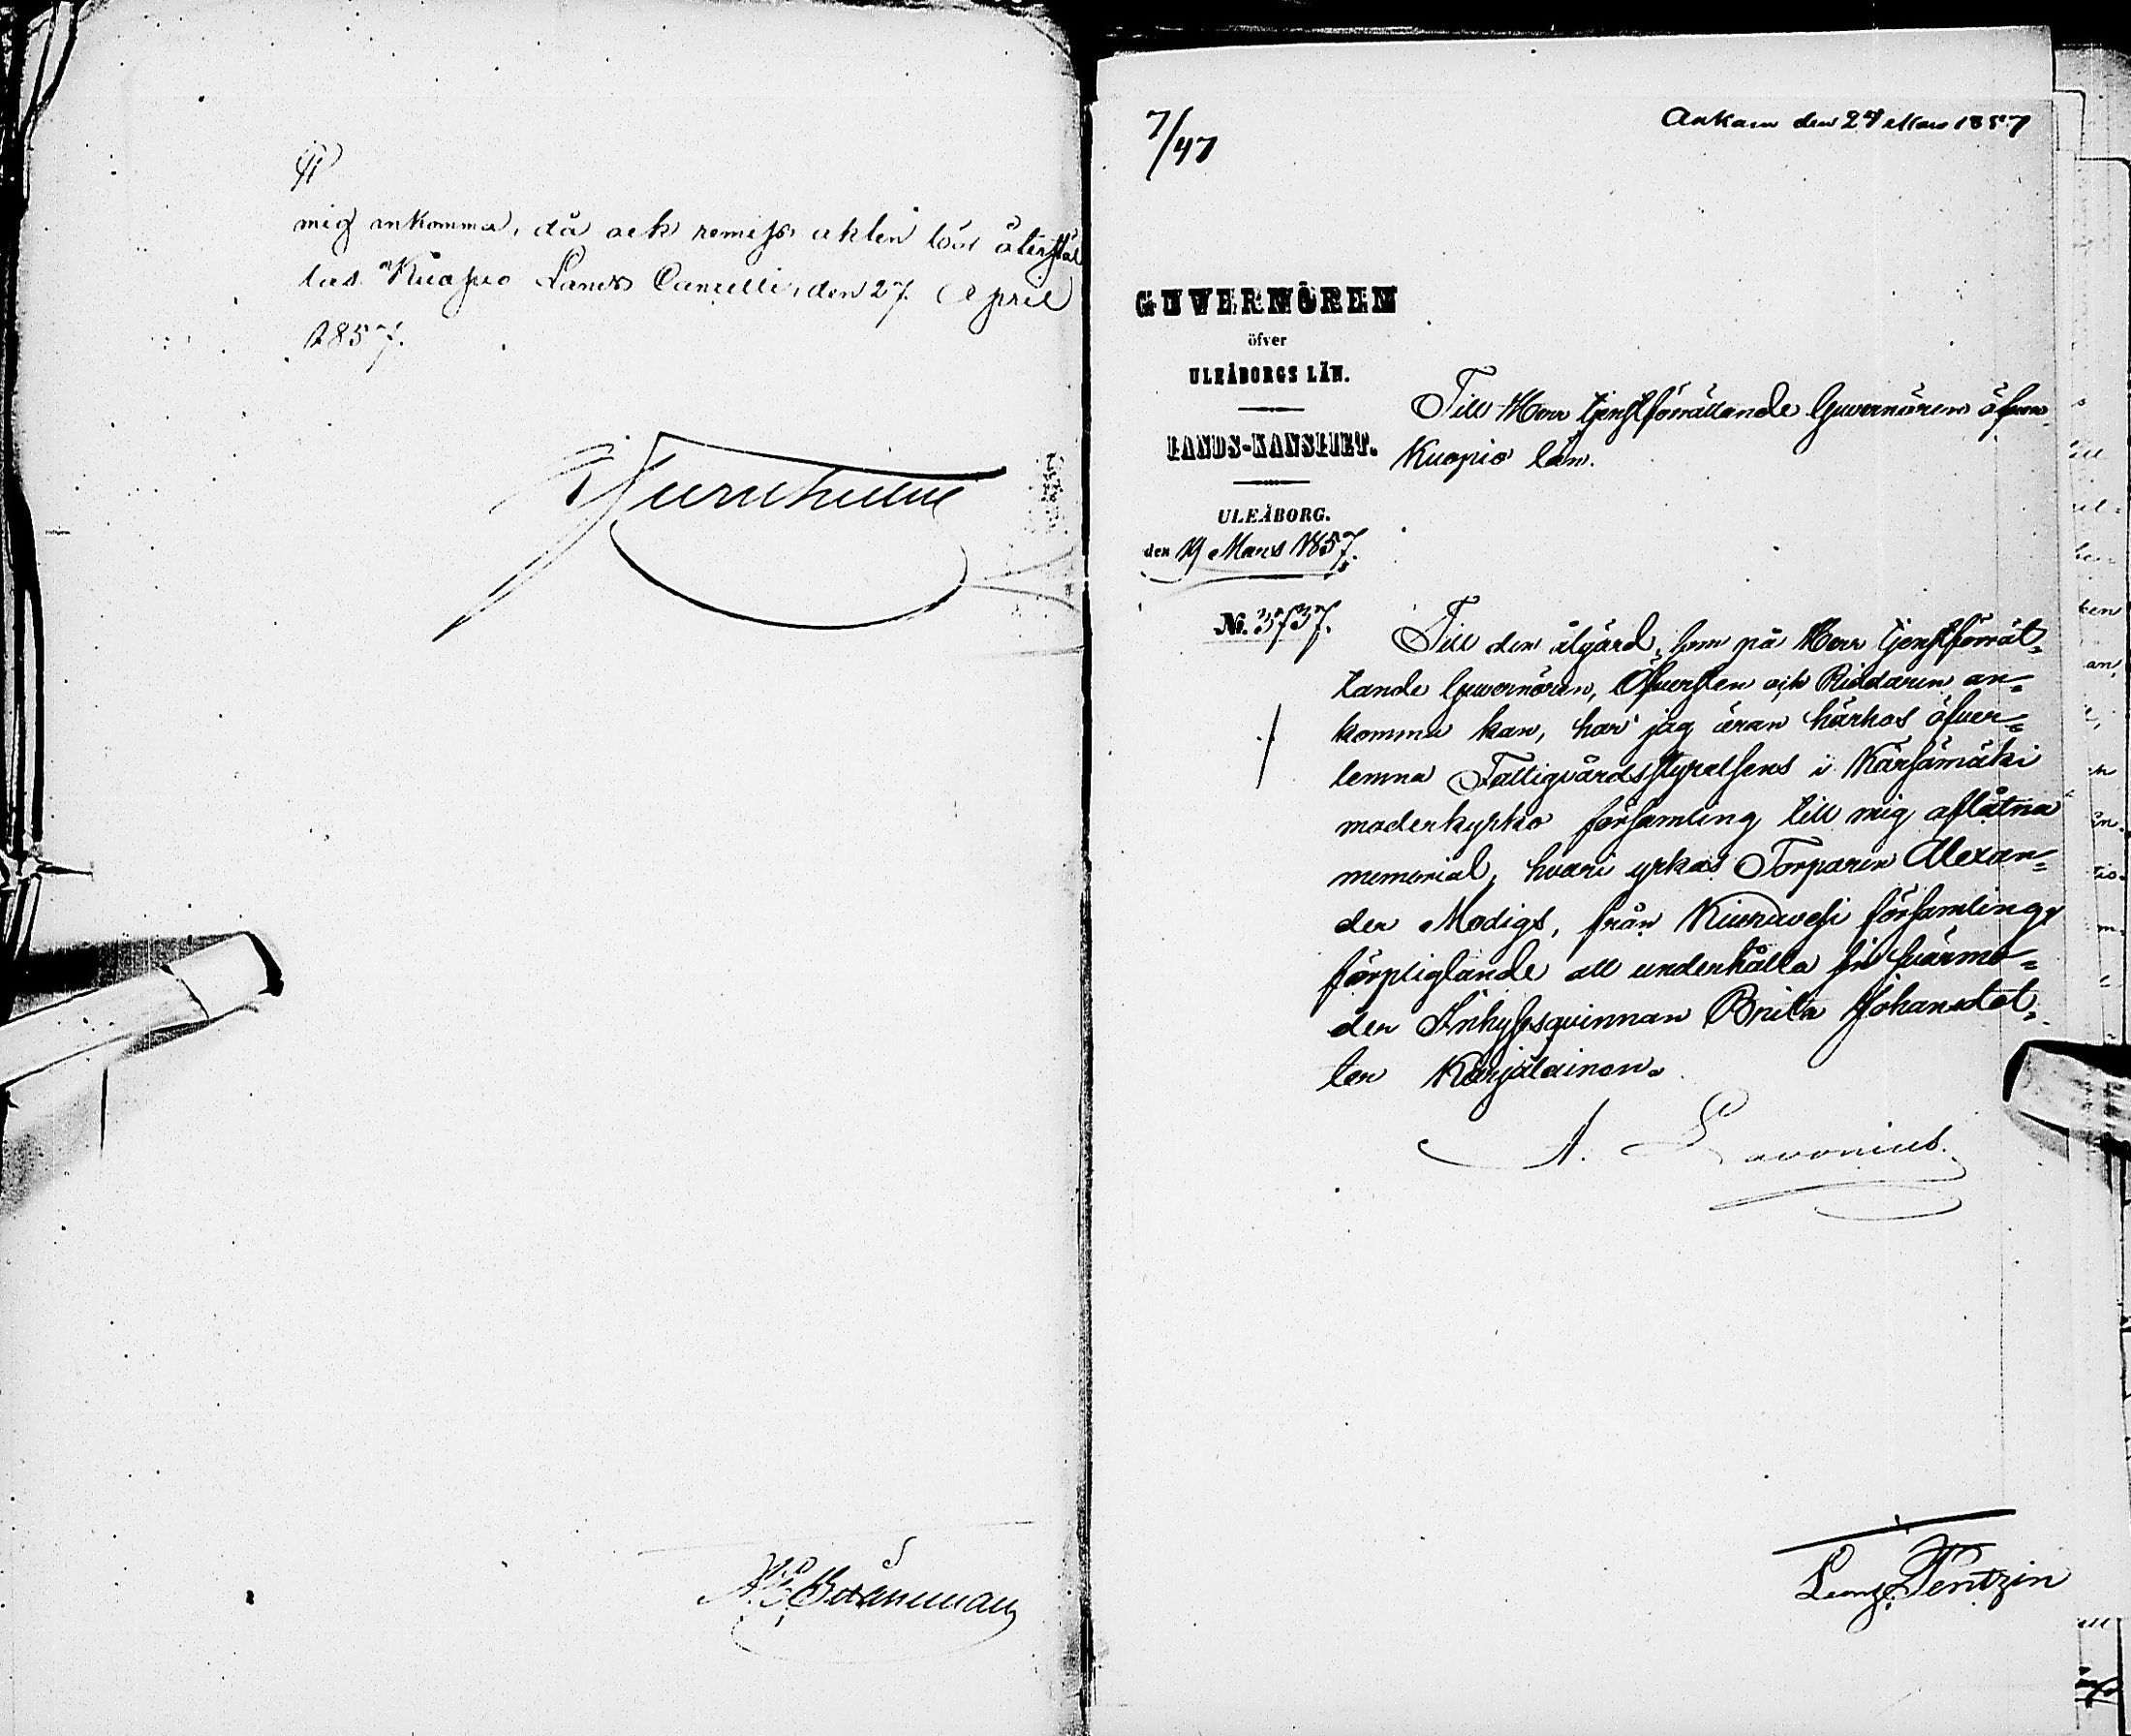 mig ankomma, då ock remiss akten bör återstäl
las. Kuopio Lands Cancelli, den 27. April
1857.
7/47
Ankom den 27 Mars 1857
GUVERNÖREN
öfver
ULEÅBORGS LÄN.
LANDS-KANSLIET.
ULEÅBORG.
den 19 Mars 1857.
No. 3737.
Till Herr tjenstförrättande Guvernören öfver
Kuopio län.
Till den åtgärd, som på Herr tjenstförrät-
tande Guvernören, Öfversten och Riddaren an-
komma kan, har jag äran härhos öfver-
lemna Fattigvårdsstyrelsens i Kärsämäki
moderkyrko församling till mig aflåtna
memorial, hvari yrkas Torparen Alexan-
der Modigs, från Kiuruvesi församling,
förpligtande att underhålla sin svärmo-
der Inhysesqvinnan Brita Johansdot-
ter Karjalainen.
A. Lavonius.